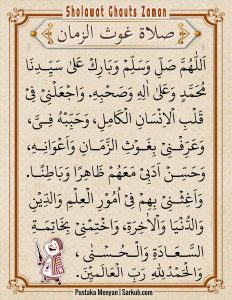 Sholawat Ghauts Zaman
صلاة غوث الزمان
اَللّٰهُمَّ صَلِّ وَسَلِّمْ وَبَارِكْ عَلىٰ سَيِّدِنَا
مُحَمَّدٍ وَعَلىٰ اٰلِهِ وَصَحْبِهِ. وَاجْعَلْنِيْ فِيْ
قَلْبِ الْاِنْسَانِ الْكَامِلِ، وَحَبِّبْهُ فِيَّ،
وَعَرِّفْنِيْ بِغَوْثِ الزَّمَانِ وَاَعْوَانِهِ،
وَحَسِّنْ اَدَبِيْ مَعَهُمْ ظَاهِرًا وَبَاطِنًا.
وَاَغِثْنِيْ بِهِمْ فِيْ اُمُوْرِ الْعِلْمِ وَالدِّيْنِ
وَالدُّنْيَا وَالْاٰخِرَةِ، وَاخْتِمْنِيْ بِخَاتِمَةِ
السَّعَادَةِ وَالْحُسْنٰى،
وَالْحَمْدُلِلّٰهِ رَبِّ الْعَالَمِيْنَ.
Pustaka Menyan | Sarkub.com